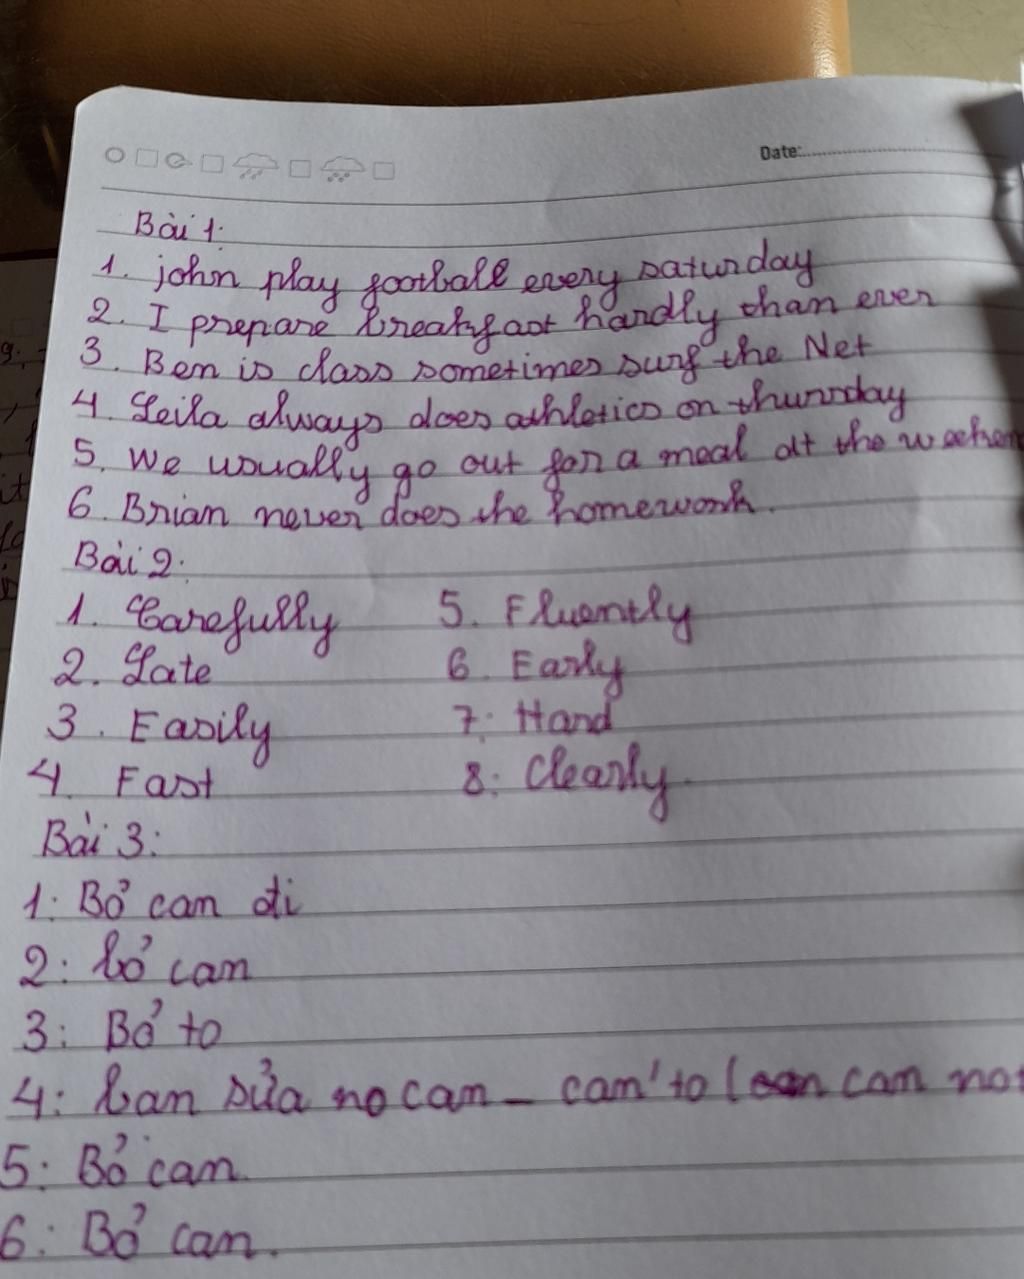 Date:
Bài 1:
1. john play football every saturday
2. I prepare breakfast hardly than ever
3. Ben is class sometimes surf the Net
4 Leila always does athletics on thursday
5. We usually go out for a meal at the
6. Brian never does the homework.
Bài 2:
1. Carefully 5. Fluently
2. Late 6. Early
3. Easily 7: Hard
4. Fast 8: Clearly.
Bài 3:
1: Bỏ can đi
2: bỏ can
3: Bỏ to
4: Lan sửa no can - can' to ( can not
5: Bỏ can.
6: Bỏ can.